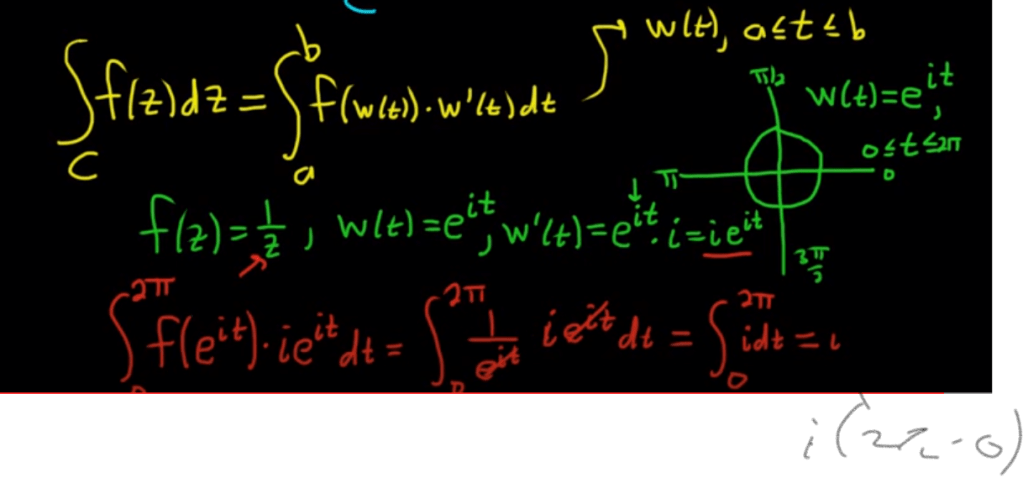 ∫_C f(z)dz = ∫_a^b f(w(t))·w'(t)dt
w(t), a≤t≤b
w(t)=e^{it},
0≤t≤2π
π/2
π
0
3π/2
f(z)=1/z, w(t)=e^{it}, w'(t)=e^{it}·i=ie^{it}
∫_0^{2π} f(e^{it})·ie^{it}dt = ∫_0^{2π} 1/e^{it} ie^{it}dt = ∫_0^{2π} idt = i
i(2π-0)